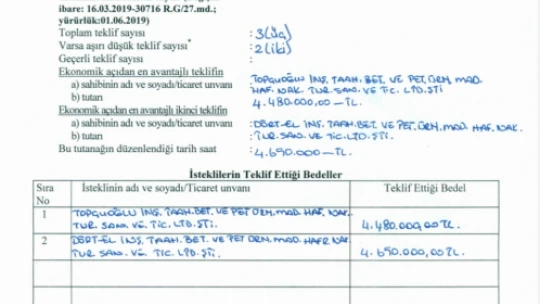 ibare: 16.03.2019-30716 R.G/27.md.;
yürürlük:01.06.2019)
Toplam teklif sayısı : 3(üç)
Varsa aşırı düşük teklif sayısı* : 2(iki)
Geçerli teklif sayısı :
Ekonomik açıdan en avantajlı teklifin
a) sahibinin adı ve soyadı/ticaret unvanı TOPÇUOĞLU İNŞ. TAAH. BET. VE PET. ORM. MAD.
HAF. NAK. TUR. SAN. VE TİC. LTD. ŞTİ
b) tutarı 4.480.000,00 -TL.
Ekonomik açıdan en avantajlı ikinci teklifin
a) sahibinin adı ve soyadı/ticaret unvanı : DÖRT-EL İNŞ. TAAH. BET. VE PET. ORM. MAD. HAF. NAK.
b) tutarı : TUR. SAN. VE TİC. LTD. ŞTİ.
Bu tutanağın düzenlendiği tarih saat : 4.690.000 -TL.
İsteklilerin Teklif Ettiği Bedeller
Sıra No İsteklinin adı ve soyadı/Ticaret unvanı Teklif Ettiği Bedel
1 TOPÇUOĞLU İNŞ. TAAH. BET. VE PET ORM. MAD. HAF. NAK.
TUR. SAN. VE TİC. LTD. ŞTİ. 4.480.000,00 TL.
2 DÖRT-EL İNŞ. TAAH. BET. VE PET ORM. MAD. HAFR NAK.
TUR. SAN. VE TİC. LTD. ŞTİ. 4.690.000,00 TL.